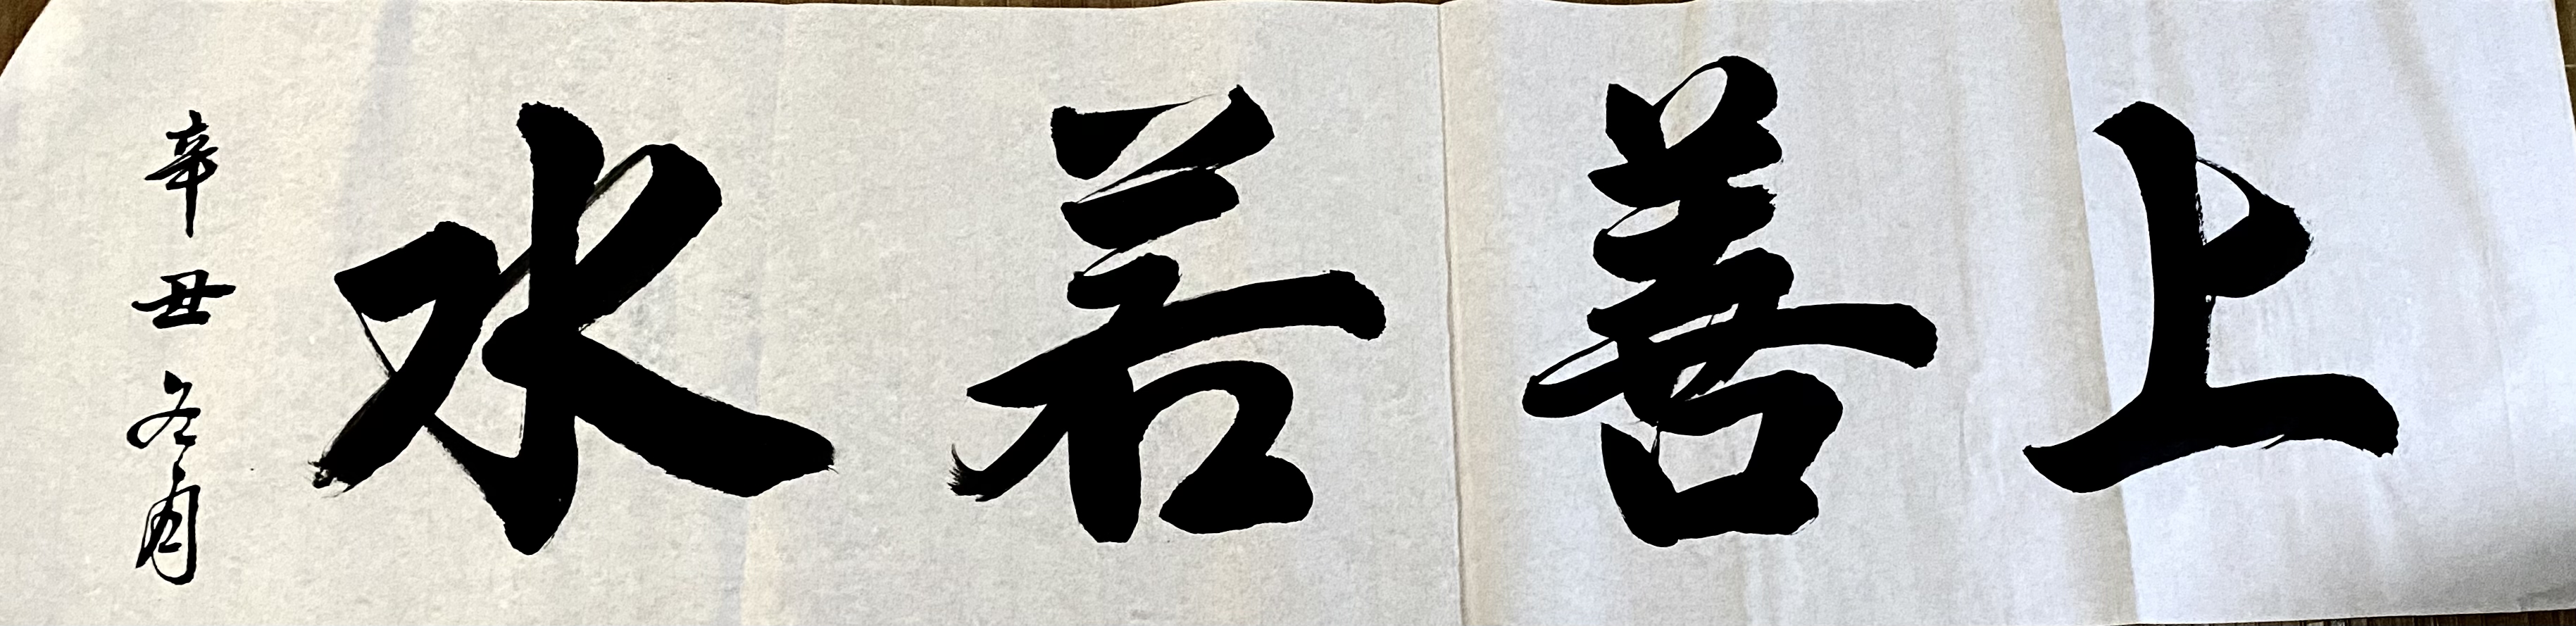 上善若水
辛丑冬月